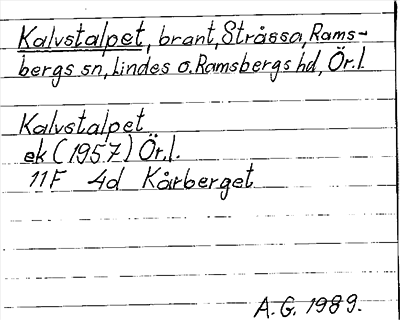 Kalvstalpet, brant, Stråssa, Rams-
bergs sn, Lindes o. Ramsbergs hd, Ör.l.
Kalvstalpet
ek (1957) Ör.l.
11F 4d Kårberget
A.G. 1989.